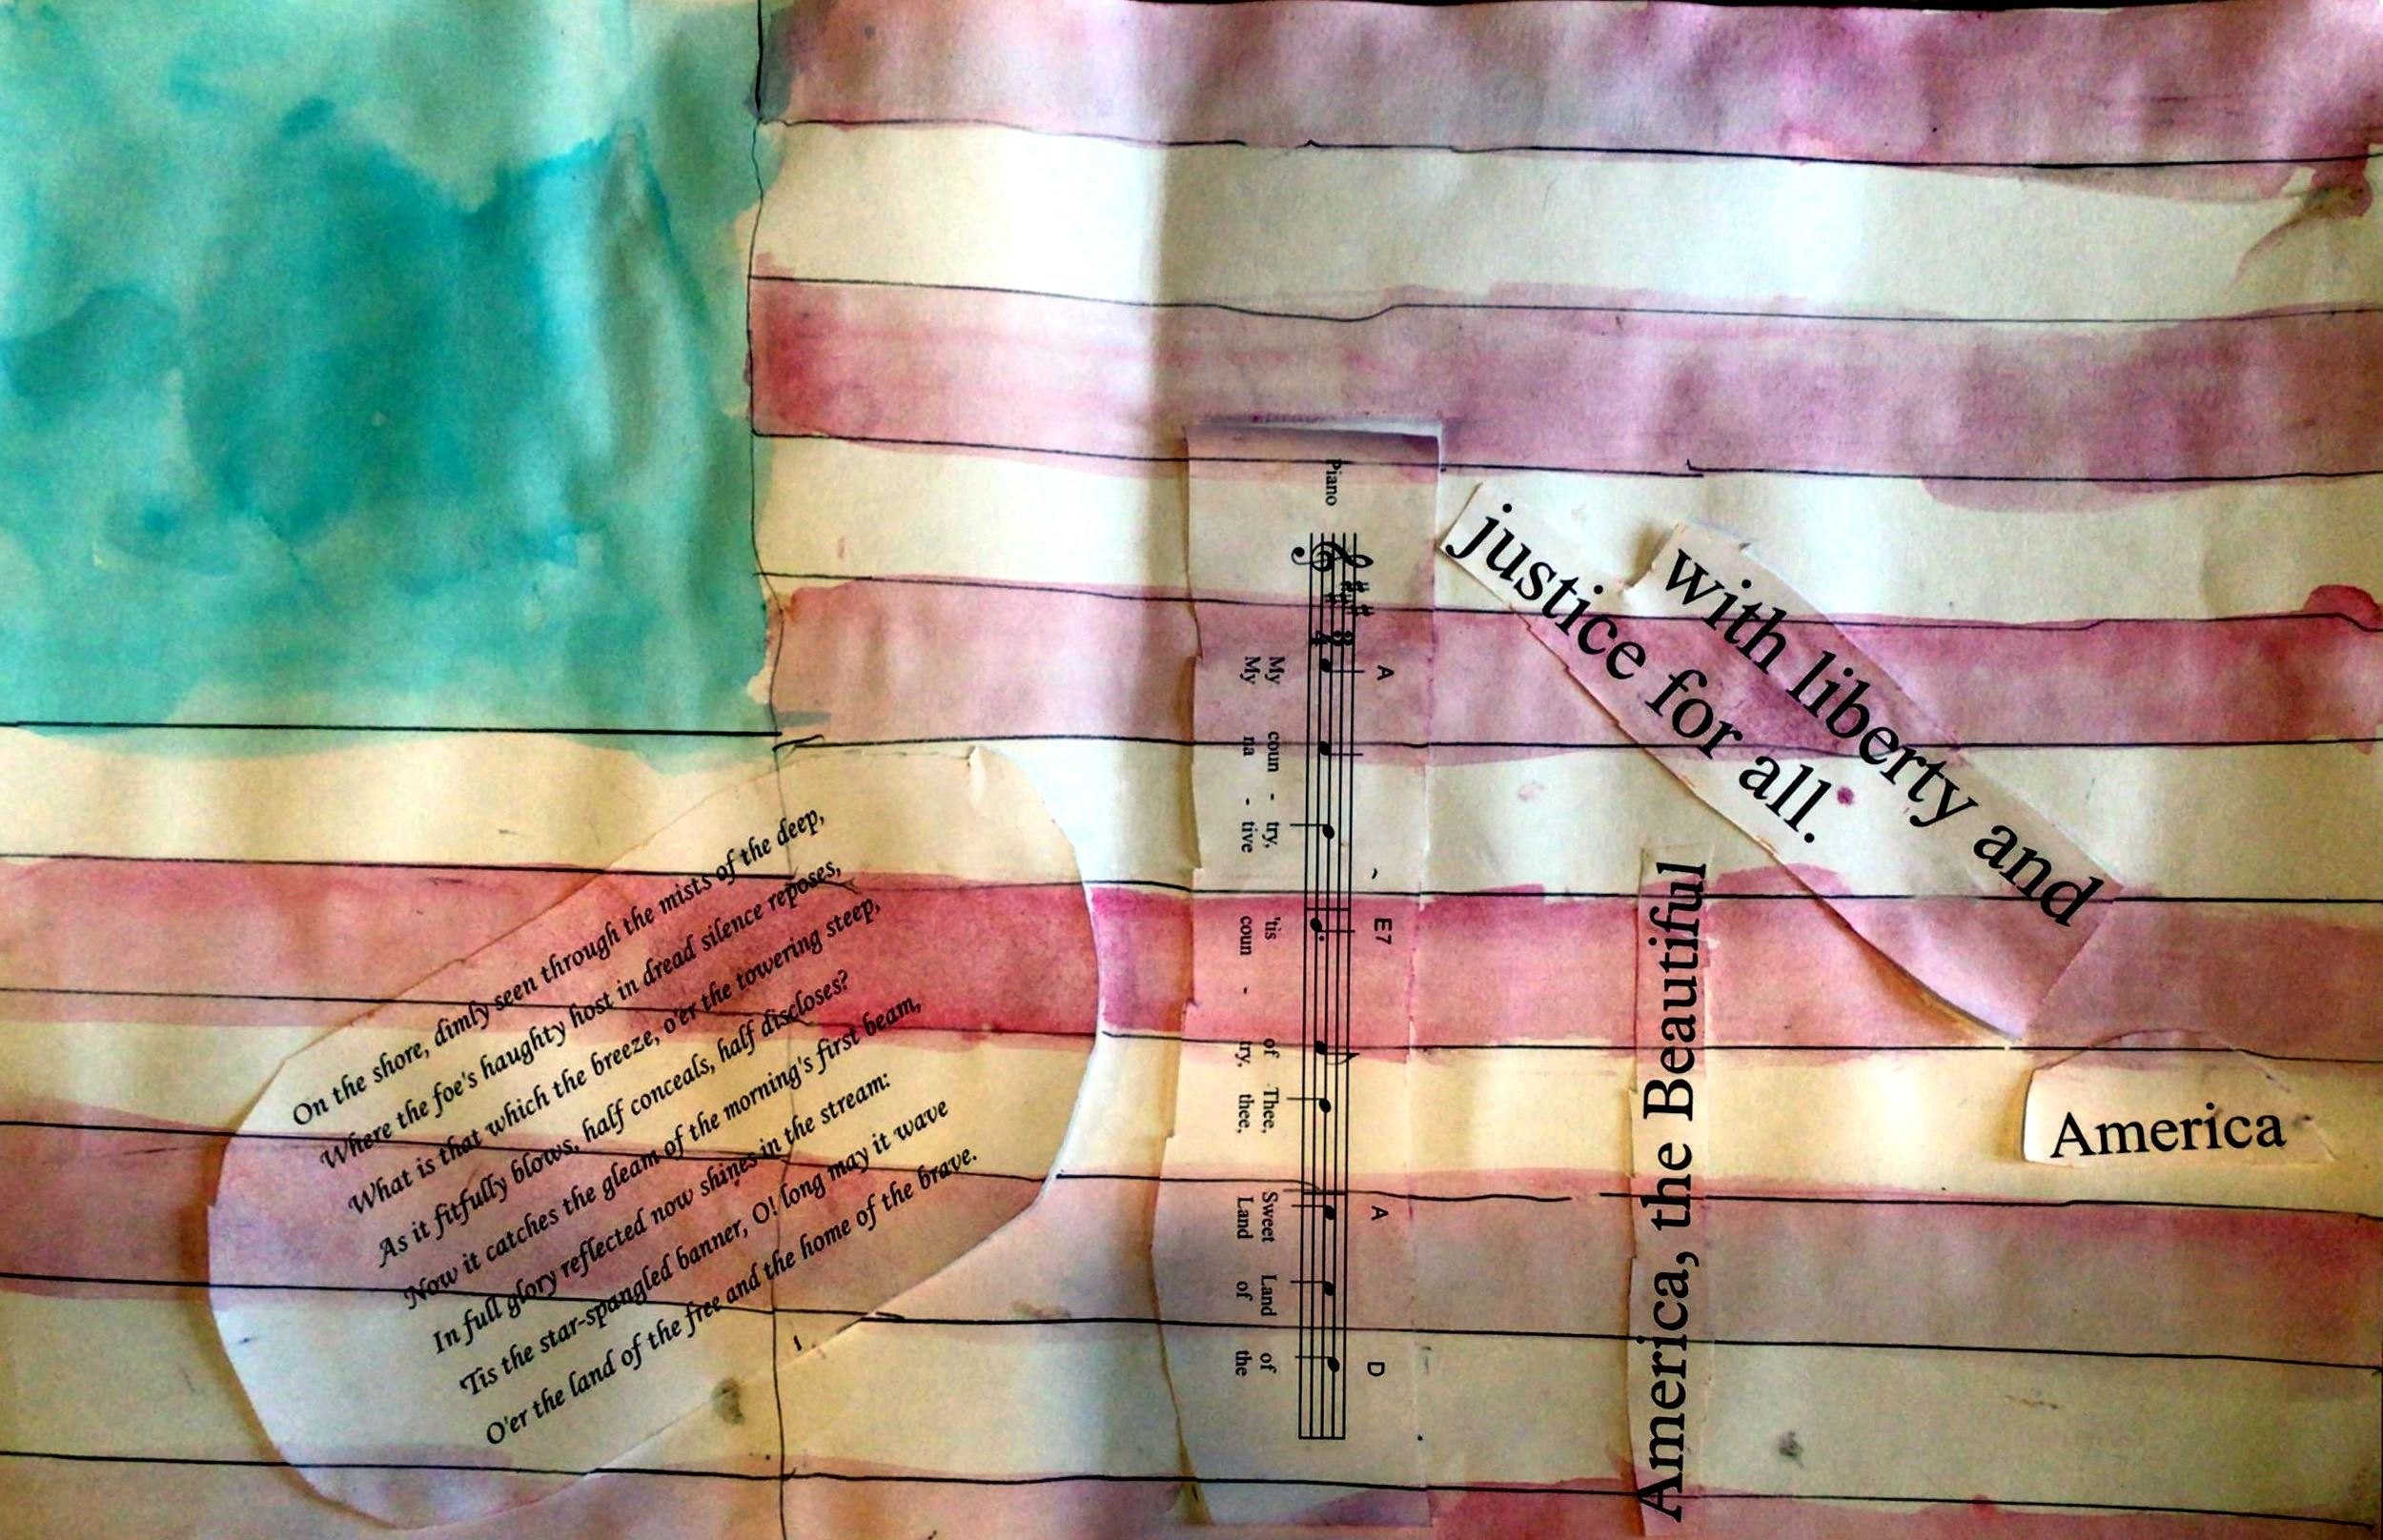 On the shore, dimly seen through the mists of the deep,
Where the foe's haughty host in dread silence reposes,
What is that which the breeze, o'er the towering steep,
As it fitfully blows, half conceals, half discloses?
Now it catches the gleam of the morning's first beam,
In full glory reflected now shines in the stream:
'Tis the star-spangled banner, O! long may it wave
O'er the land of the free and the home of the brave.
Piano
A E7 A D
My coun - try, 'tis of Thee, Sweet Land of
My na - tive coun - try, thee, Land of the
with liberty and
justice for all.
America, the Beautiful
America